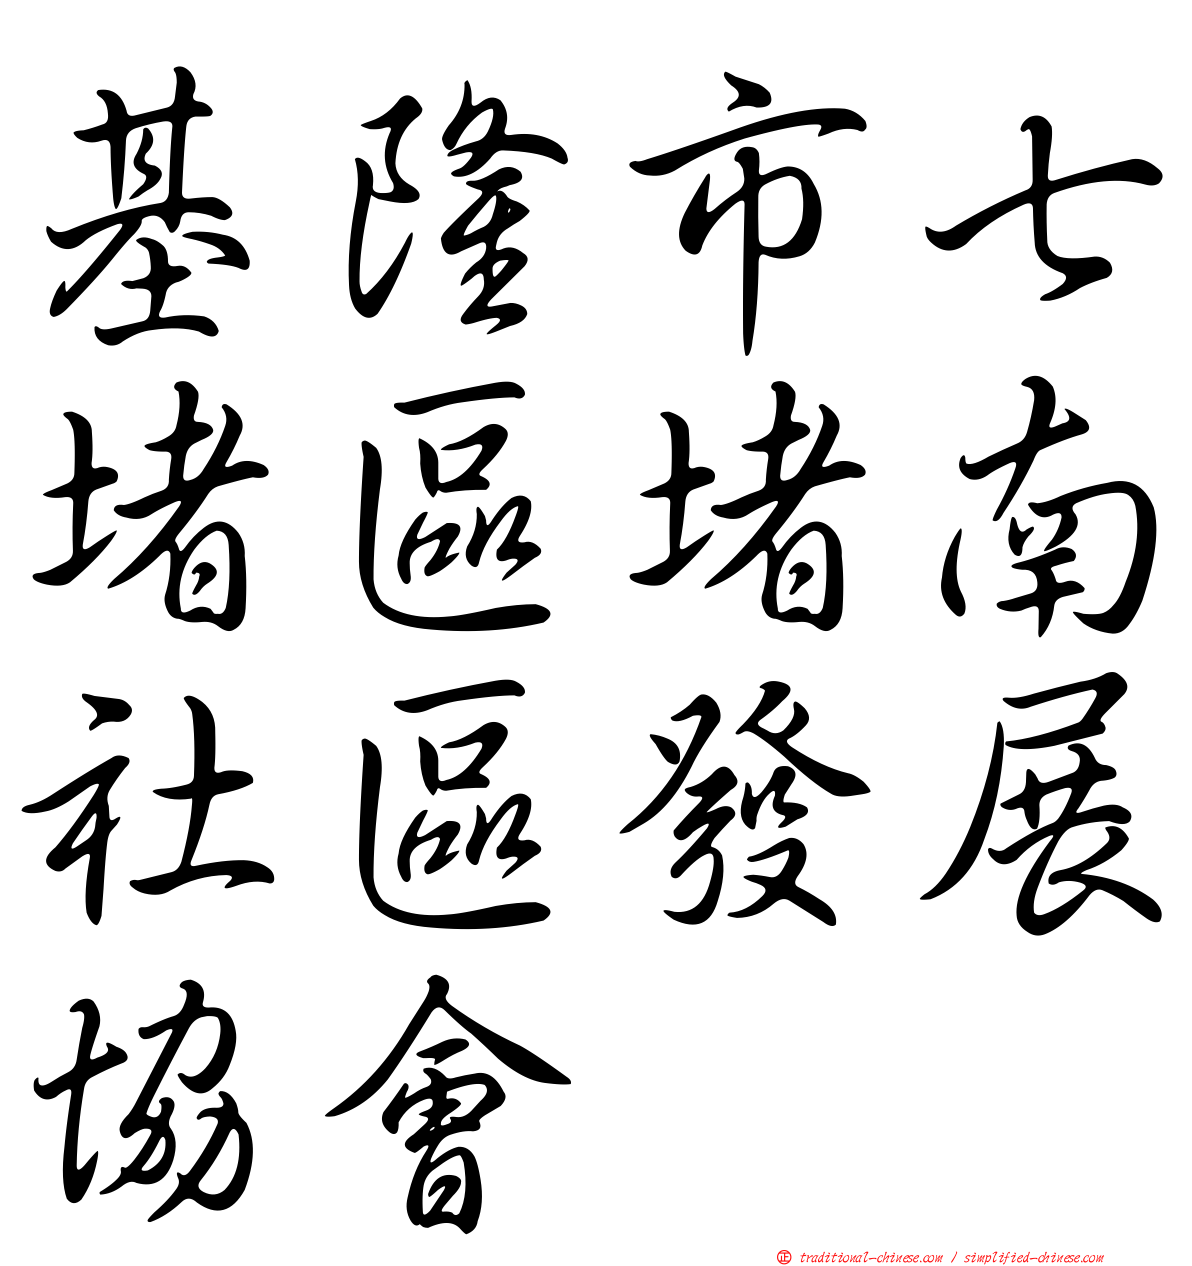 基隆市七
堵區堵南
社區發展
協會
正 traditional-chinese.com / simplified-chinese.com